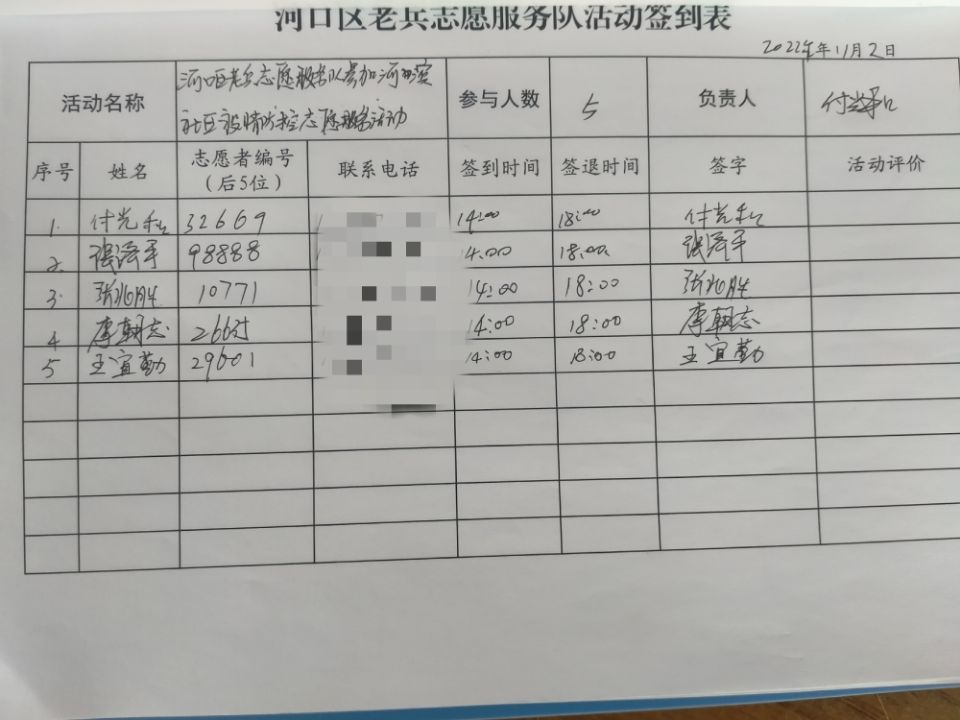 河口区老兵志愿服务队活动签到表
2022年年11月2日
活动名称 河口区老兵志愿服务队参加河滨 参与人数 5 负责人
社区疫情防控志愿服务活动
序号 姓名 志愿者编号 联系电话 签到时间 签退时间 签字 活动评价
（后5位）
1. 付光和 32669 14:00 18:00 付光和
2. 张泽军 98888 14:00 18:00 张泽军
3. 张兆胜 10771 14:00 18:00 张兆胜
4 李朝志 14:00 18:00 李朝志
5 王宜勤 29601 14:00 18:00 王宜勤